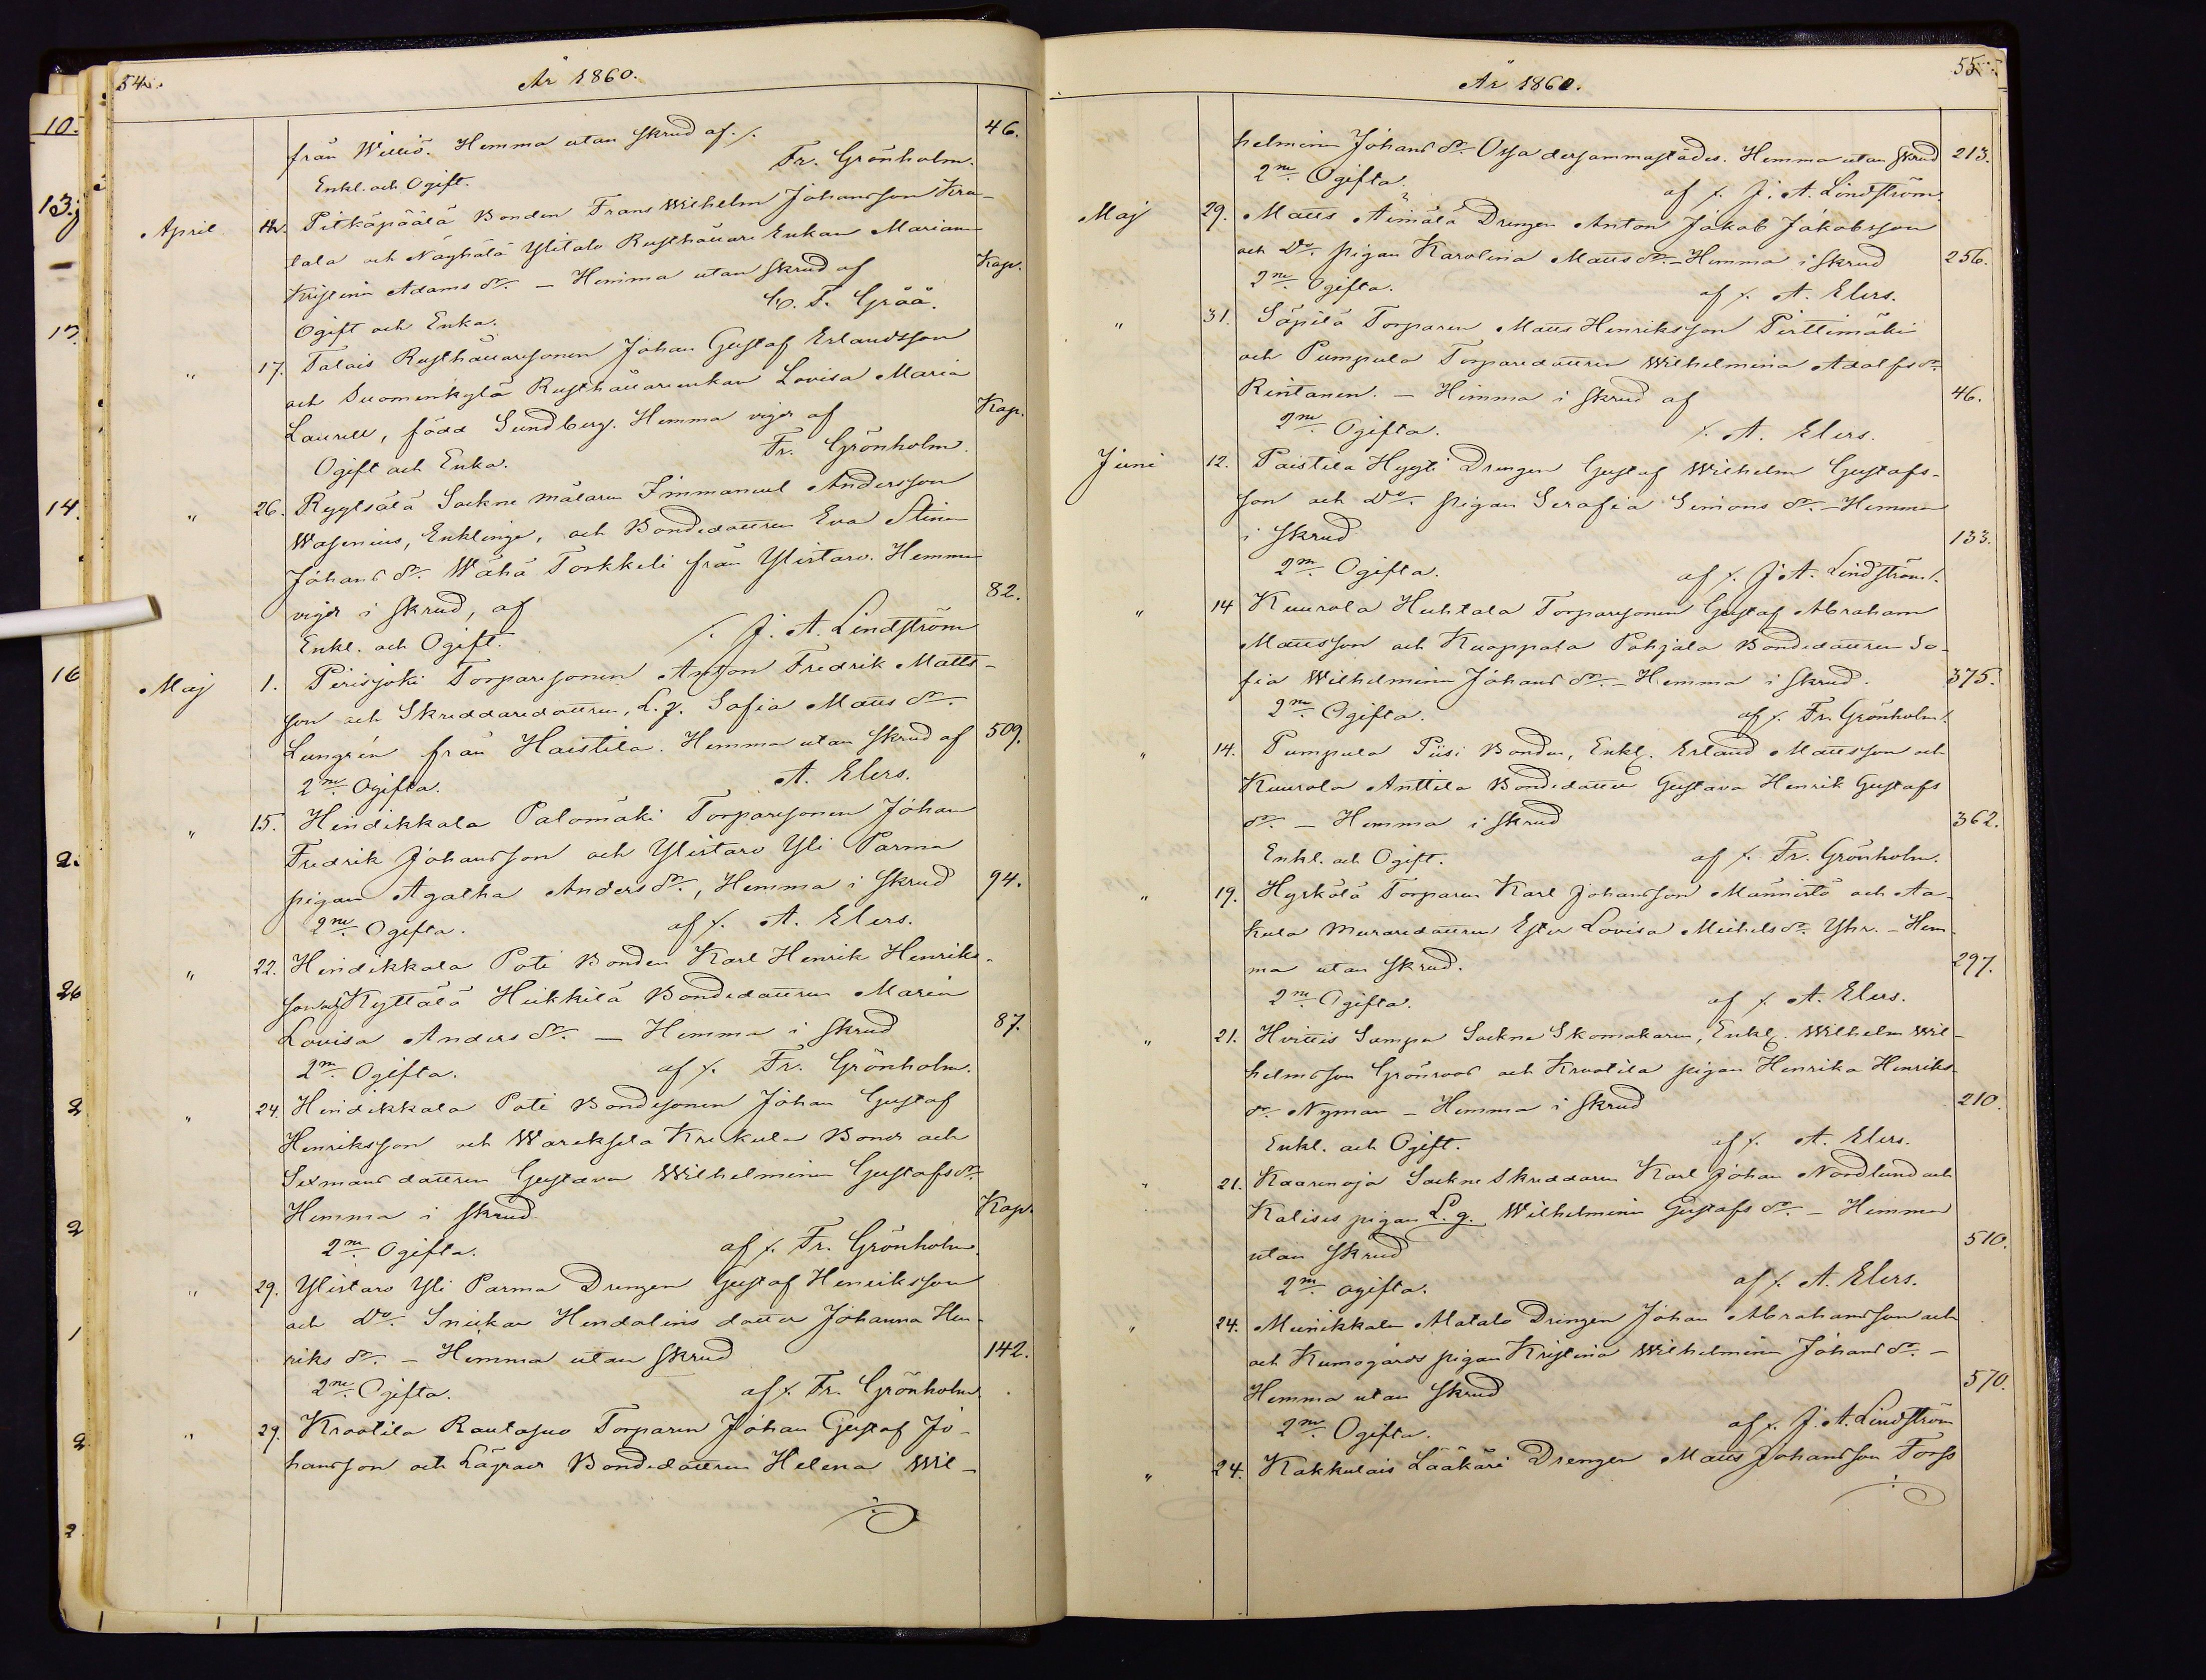 54.
År 1860.
från Willio. Hemma utan skrud af ./. 46.
Fr. Grönholm.
Enkl. och Ogift.
April 14. Pitkäpäälä Bonden Frans Wilhelm Johansson Kra-
tala och Näyhälä Ylitalo Rusthållare Enkan Mariana
Kristina Adams dr. – Hemma utan skrud af Kap.
C. F. Grää.
Ogift och Enka.
" 17. Talais Rusthållaresonen Johan Gustaf Erlandsson
och Suomenkylä Rusthållareenkan Lovisa Maria
Laurell, född Sundberg. Hemma vigde af Kap.
Fr. Grönholm.
Ogift och Enka.
" 26. Ryytsälä Sockne målaren Immanuel Andersson
Wasenius, Enklinge, och Bondedottren Eva Stina
Johans dr. Wähä Torkkeli från Ylistaro. Hemma
vigde i skrud, af 82.
./. J. A. Lindström
Enkl. och Ogift.
Maj 1. Perisjoki Torparesonen Anton Fredrik Matts-
son och Skreddaredottren, L. q. Sofia Matts dr.
Lungrén från Haistila. Hemma utan skrud af 509.
2ne. Ogifta. A. Elers.
" 15. Hendikkala Palomäki Torparesonen Johan
Fredrik Johansson och Ylistaro Yli Parma
pigan Agatha Anders dr., Hemma i skrud 94.
2ne. Ogifta. af ./. A. Elers.
" 22. Hendikkala Poti Bonden Karl Henrik Henriks-
son och Kyttälä Heikkilä Bondedottren Maria
Lovisa Anders dr. – Hemma i skrud 87.
2ne. Ogifta. af ./. Fr. Grönholm.
" 24. Hendikkala Poti Bondesonen Johan Gustaf
Henriksson och Wareksela Krekula Bonde och
Sexmans dottren Gustava Wilhelmina Gustafs dr.
Hemma i skrud Kap.
2ne. Ogifta. af ./. Fr. Grönholm.
" 29. Ylistaro Yli Parma Drengen Gustaf Henriksson
och Do. Snickar Hendolins dotter Johanna Hen-
riks dr. – Hemma utan skrud 142.
2ne. Ogifta. af ./. Fr. Grönholm.
" 29. Kraotila Rautasuo Torparen Johan Gustaf Jo-
hansson och Bondedottren Helena Wil-
55.
År 1860.
helmina Johans dr. Ossa dersammastädes. Hemma utan skrud 213.
2ne. Ogifta. af ./. J. A. Lindström.
Maj 29. Matts Äimälä Drengen Anton Jakob Jakobsson
och Do. pigan Karolina Matts dr. – Hemma i skrud 256.
2ne. Ogifta. af ./. A. Elers.
" 31. Säpilä Torparen Matts Henriksson Pirttimäki
och Pumpula Torparedottren Wilhelmina Adolfs dr.
Rintanen. – Hemma i skrud af 46.
2ne. Ogifta. ./. A. Elers.
Juni 12. Paistila Hyyti Drengen Gustaf Wilhelm Gustafs-
son och Do. pigan Serafia Simons dr. – Hemma
i skrud 133.
2ne. Ogifta. af ./. J. A. Lindström.
" 14 Kuurola Huhtala Torparesonen Gustaf Abraham
Mattsson och Kuoppala Pohjala Bondedottren So-
fia Wilhelmina Johans dr. – Hemma i skrud. 375.
2ne. Ogifta. af ./. Fr. Grönholm.
" 14. Pumpula Piisi Bonden, Enkl. Erland Mattsson och
Kuurola Anttila Bondedotter Gustava Henrik Gustafs
dr. – Hemma i skrud 362.
Enkl. och Ogift. af ./. Fr. Grönholm.
" 19. Hyrkölä Torparen Karl Johansson Männistö och Aa-
kula Muraredottren Ester Lovisa Michels dr. Yhr. – Hem-
ma utan skrud. 297.
2ne. Ogifta. af ./. A. Elers.
" 21. Hvittis Sampu Sockne Skomakaren, Enkl. Wilhelm Wil-
helmsson Grönroos och Kraotila pigan Henrika Henriks
dr. Nyman – Hemma i skrud 210.
Enkl. och Ogift. af ./. A. Elers.
" 21. Kaarenoja Sockne Skreddaren Karl Johan Nordlund och
Kalisis pigan L. q. Wilhelmina Gustafs dr. – Hemma
utan skrud 510.
2ne. ogifta. af ./. A. Elers.
" 24. Meinikkala Alatalo Drengen Johan Abrahamsson och
och Kumogårds pigan Kristina Wilhelmina Johans dr. –
Hemma utan skrud 570.
2ne. Ogifta. af ./. J. A. Lindström
" 24. Kakkulais Lääkäri Drengen Matts Johansson Forss
10.
13.
14.
16
2.
26
2
2
1
2
2